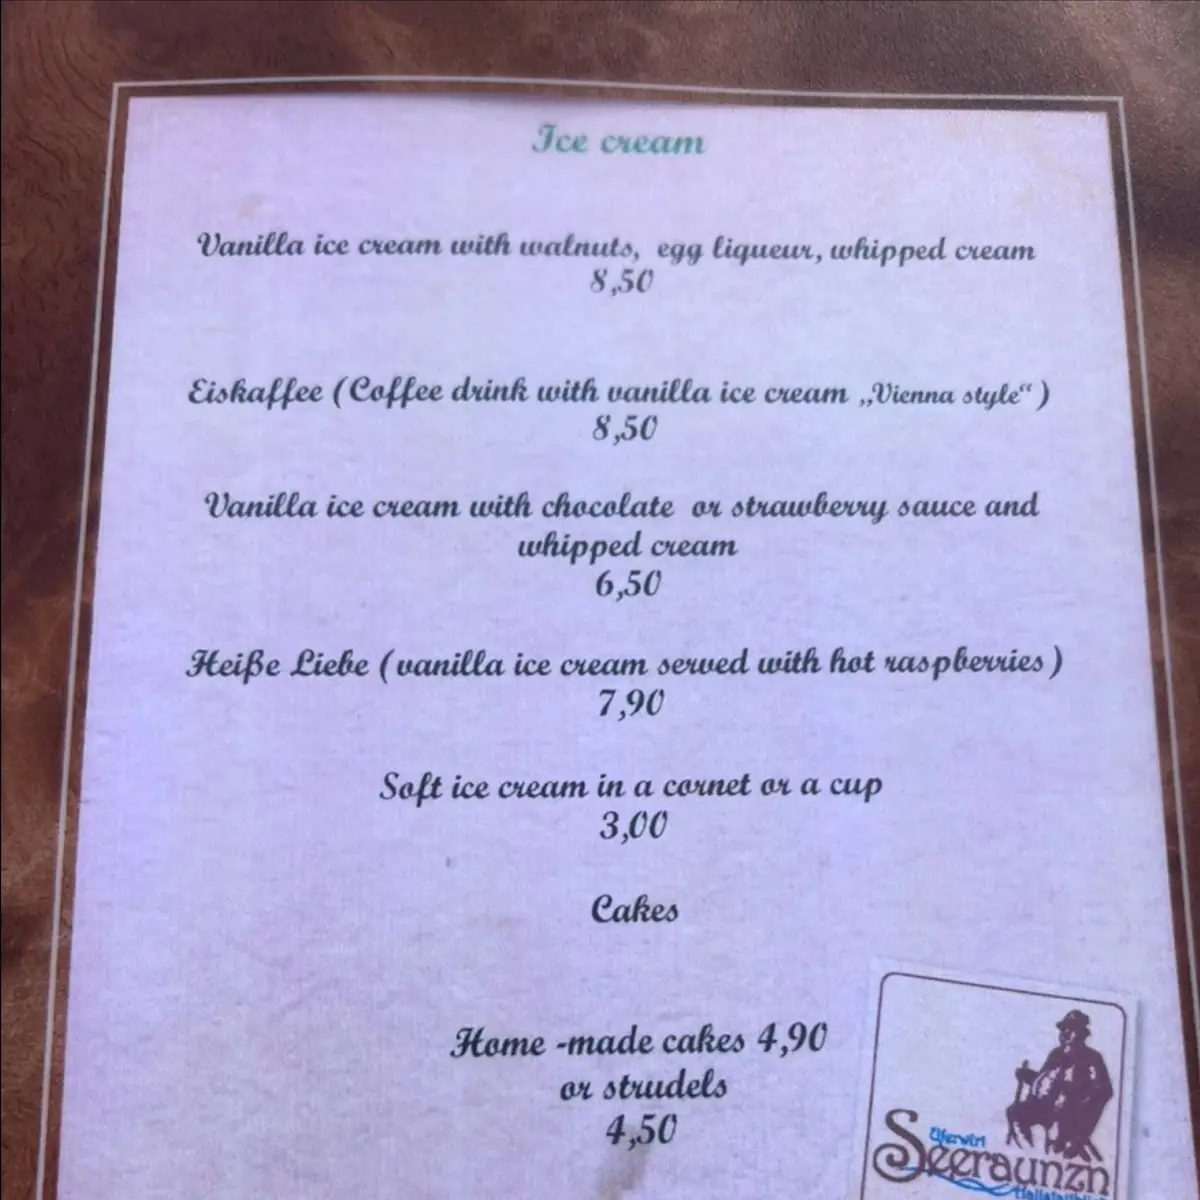 Ice cream
Vanilla ice cream with walnuts, egg liqueur, whipped cream
8,50
Eiskaffee (Coffee drink with vanilla ice cream „Vienna style“)
8,50
Vanilla ice cream with chocolate or strawberry sauce and
whipped cream
6,50
Heiße Liebe (vanilla ice cream served with hot raspberries)
7,90
Soft ice cream in a cornet or a cup
3,00
Cakes
Home -made cakes 4,90
or strudels
4,50
Uferwirt
Seeraunzn